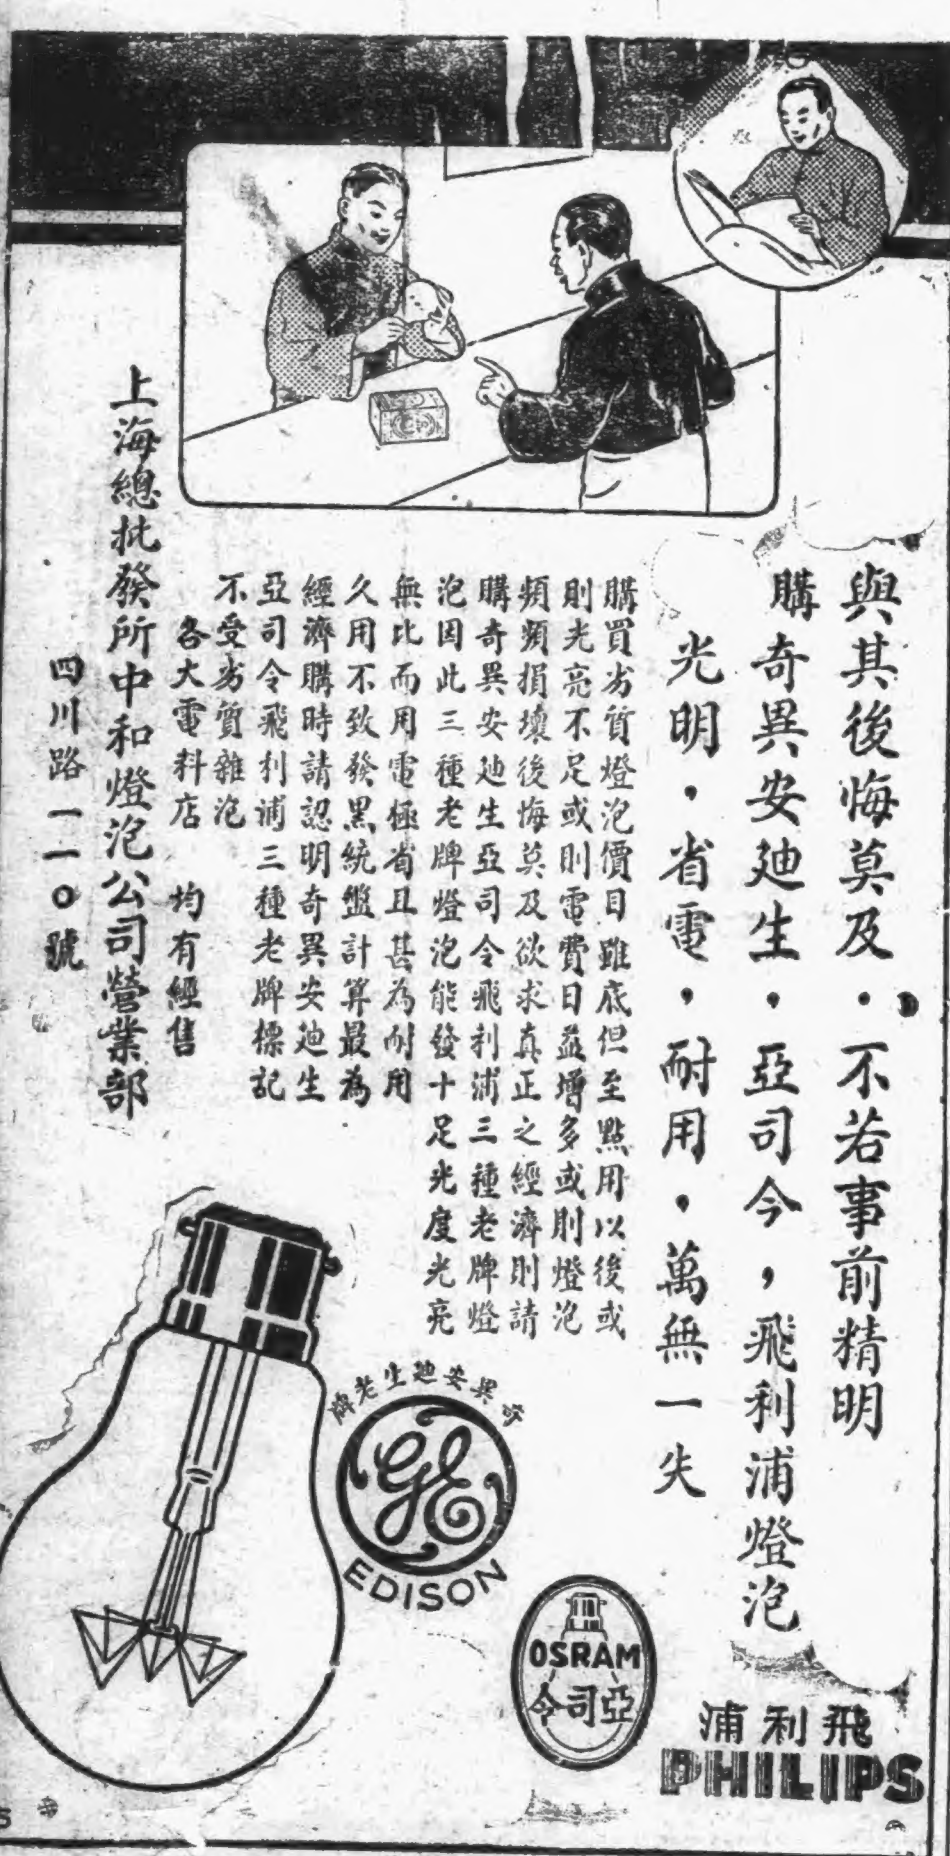 與其後悔莫及・不若事前精明
購奇異安廸生，亞司令，飛利浦燈泡
光明，省電，耐用，萬無一失
購買劣質燈泡價目雖底但至點用以後或
則光亮不足或則電費日益增多或則燈泡
頻頻損壞後悔莫及欲求真正之經濟則請
購奇異安廸生亞司令飛利浦三種老牌燈
泡因此三種老牌燈泡能發十足光度光亮
無比而用電極省且甚為耐用
久用不致發黑統盤計算最為
經濟購時請認明奇異安廸生
亞司令飛利浦三種老牌標記
不受劣質雜泡
各大電料店 均有經售
上海總批發所中和燈泡公司營業部
四川路一一〇號
奇異安廸生老牌
GE
EDISON
OSRAM
亞司令
飛利浦
PHILIPS